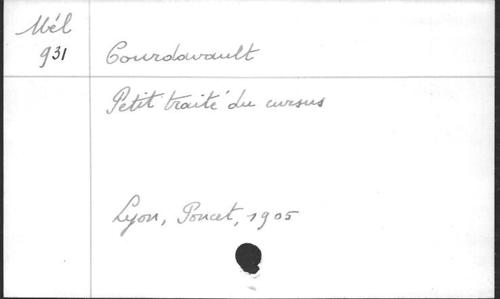 Mél
931
Courdavault
Petit traité du cursus
Lyon, Poncet, 1905